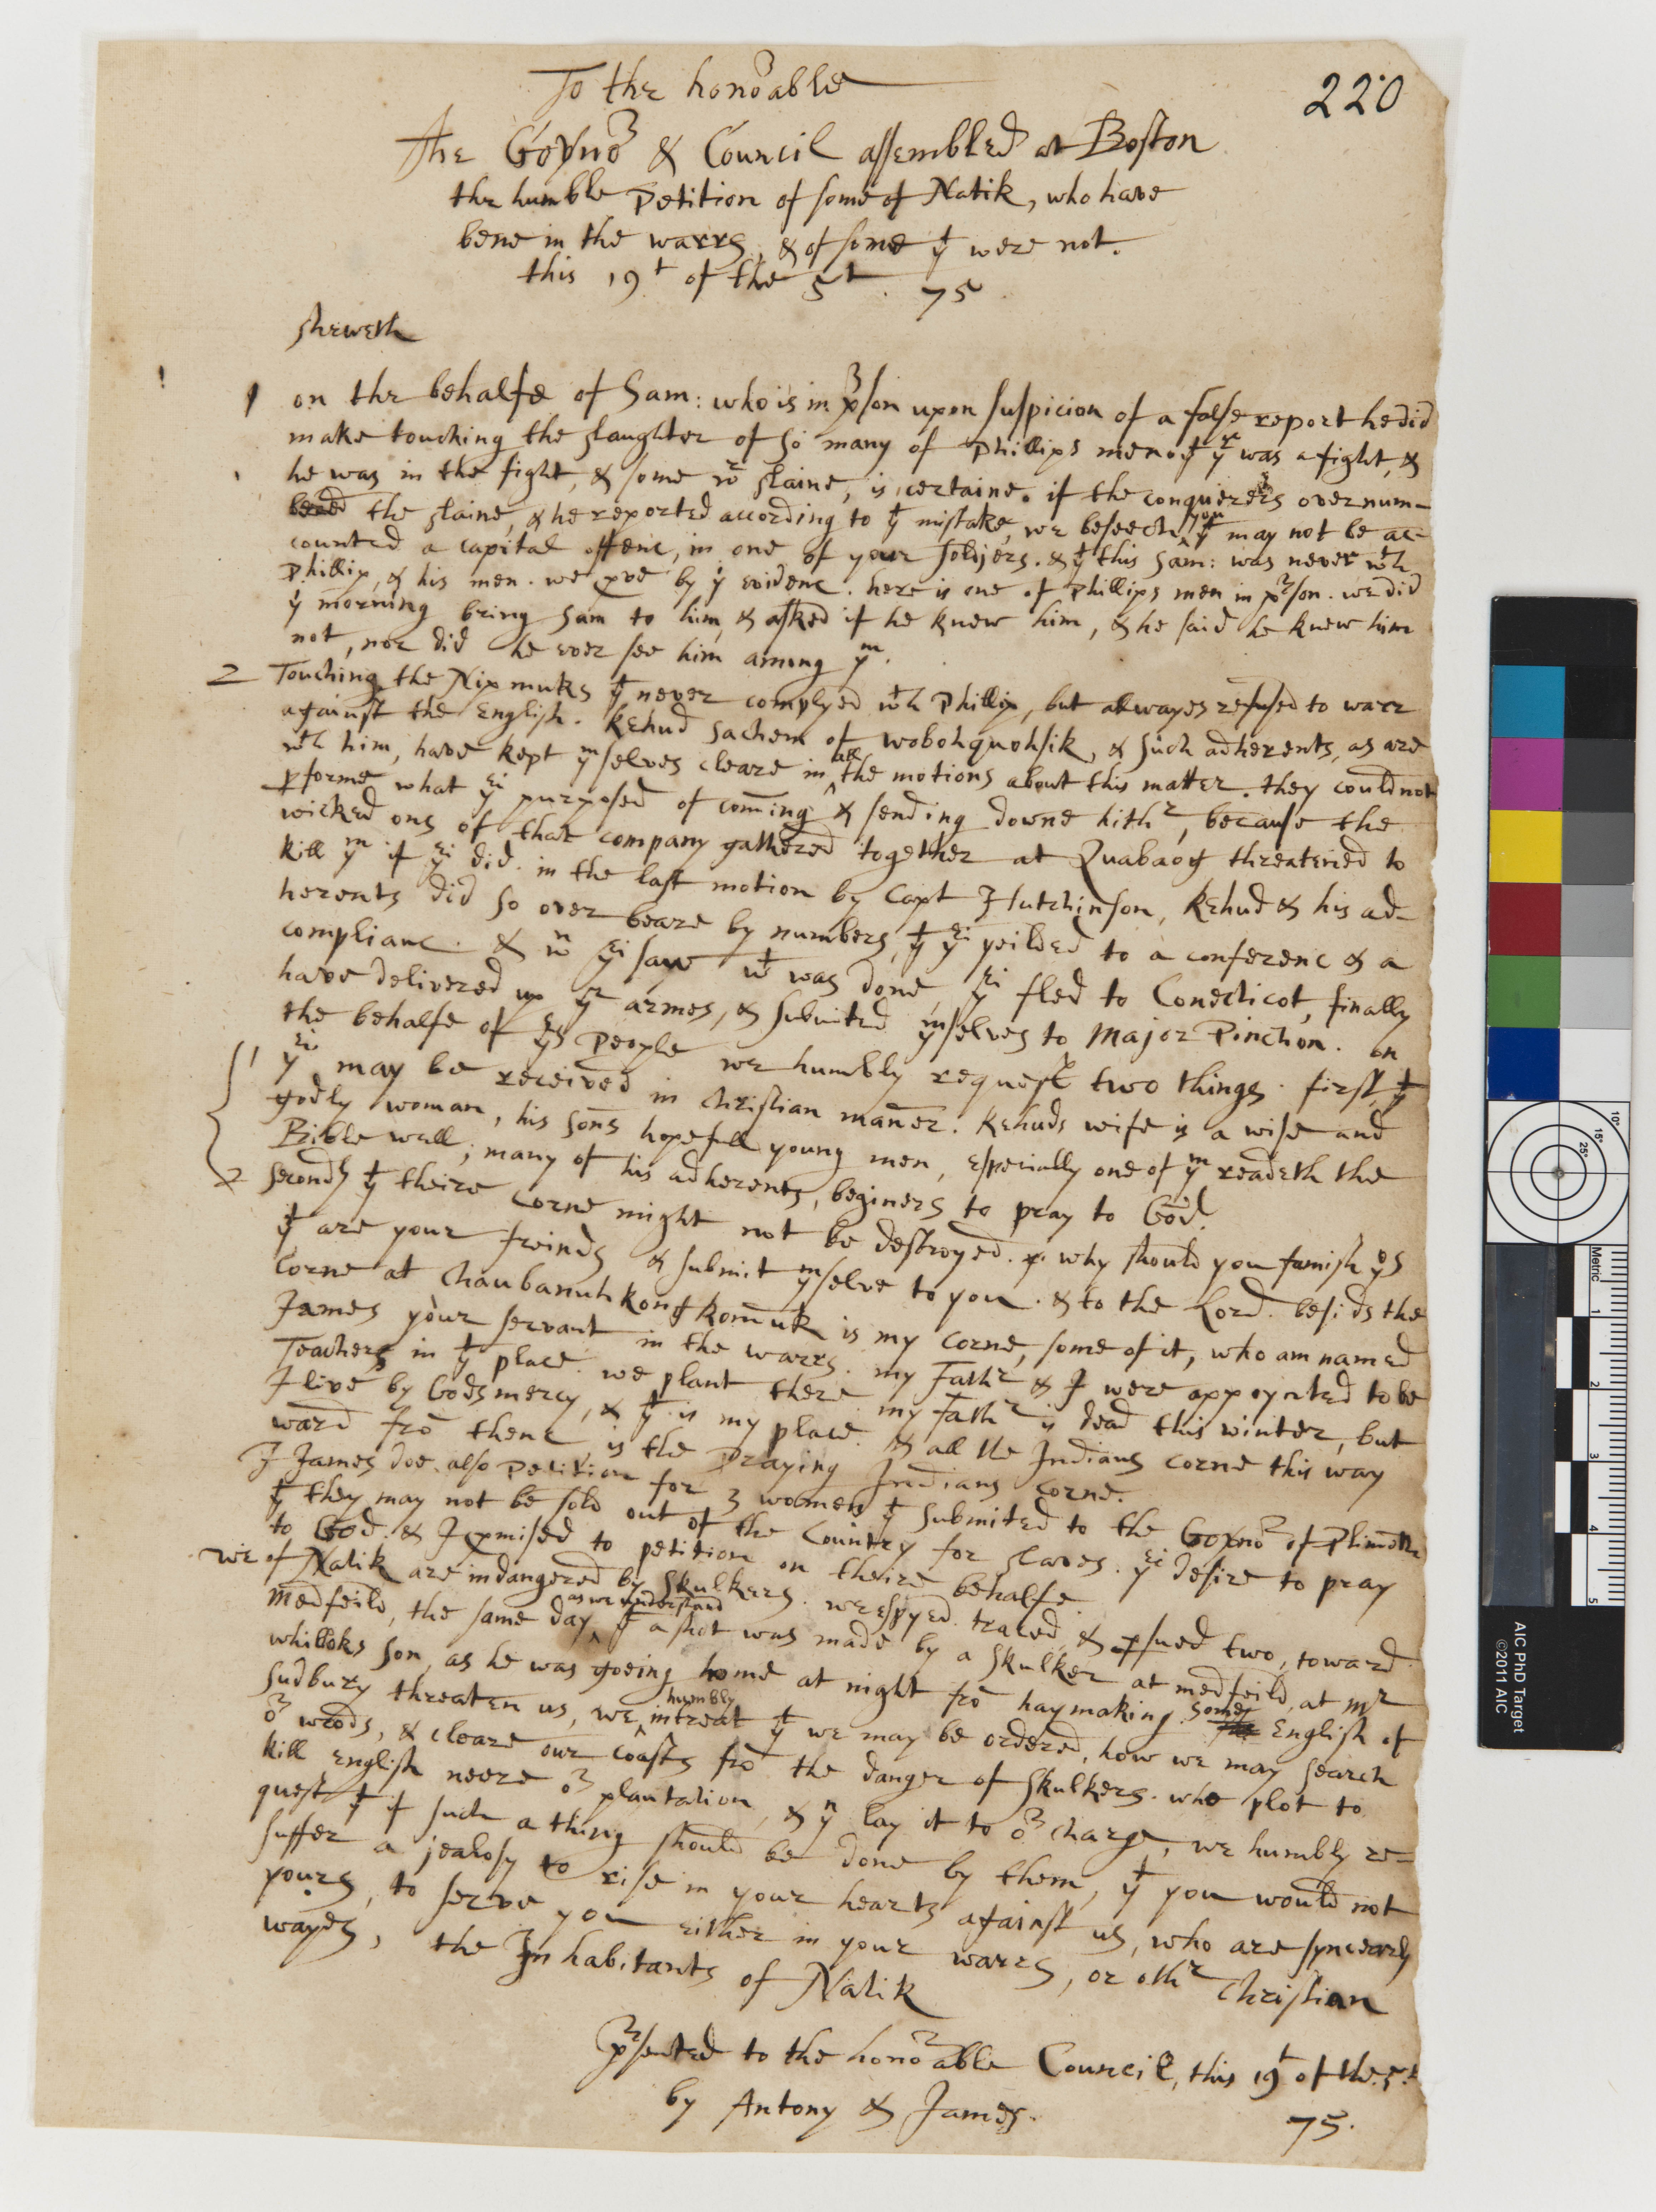 220
To the honoᵊable
The Goỹnoᵊ & Council assembled at Boston
the humble Petition of some of Natik, who have
bene in the warrs, & of some yᵗ were not.
this 19ᵗ of the 5ᵗ . 75
sheweth
1 on the behalfe of Sam: who is in pʳson upon suspicion of a false report he did
make touching the slaughter of so many of Phillips men. yᵗ yʳ was a fight, &
he was in the fight, & some wʳ slaine, is certaine. if the conquerers overnum-
bered the slaine, & he reported according to yᵗ mistake, we beseech you yᵗ may not be ac-
counted a capital offenc, in one of your soldjers. & yᵗ this Sam: was never wᵗh
Phillip, & his men. we pve by yˢ evidenc. here is one of Phillips men in pʳson. we did
yˢ morning bring Sam to him, & asked if he knew him, & he said he knew him
not, nor did he ever see him among yᵐ.
2 Touching the Nipmuks yᵗ never complyed wᵗh Phillip, but alwayes refused to warr
against the English. Kehud sachem of wobohquohsik, & such adherents, as are
wᵗh him, have kept yᵐselves cleare in all the motions about this matter. they could not
pforme what yᵉⁱ purposed of com̄ing & sending downe hithʳ, because the
wicked ons of that company gathered together at Quabaog threatened to
kill yᵐ if yᵉⁱ did. in the last motion by Capt Hutchinson, Kehud & his ad-
herents did so over beare by numbers, yᵗ yᵉⁱ yeilded to a conferenc & a
complianc. & wⁿ yᵉⁱ saw wᵗ was done, yᵉⁱ fled to Conecticot, finally
have delivered up yʳ armes, & submited yᵐselves to Major Pinchon. on
the behalfe of yˢ People we humbly request two things. first, yᵗ
1 yᵉⁱ may be received in christian man̄er. Kehuds wife is a wise and
godly woman, his sons hopefull young men, especially one of yᵐ readeth the
Bible well; many of his adherents, beginers to pray to God.
2 secondly yᵗ theire corne might not be destroyed. why should you famish yᵒˢ
yᵗ are your freinds & submit yᵐselve to you. & to the Lord. besids the
Corne at Chaubanuhkongkom̄uk is my corne, some of it, who am named
James your servant in the warrs. my Fathʳ & I were appoynted to be
Teachers in yᵗ place. we plant there. my Fathʳ is dead this winter, but
I live by Gods mercy, & yᵗ is my place. & all the Indians corne this way
ward frō thenc, is the Praying Indians corne.
I James doe also Petition for 3 women yᵗ submited to the Goỹnoᵊ of Plimoth
yᵗ they may not be sold out of the Country for slaves. yᵉⁱ desire to pray
to God. & I pmised to petition on theire behalfe.
We of Natik are indangered by Skulkers. we espyed. traced, & psued two, toward
Medfeild, the same day, as we understand yᵗ a shot was made by a skulker at medfeild, at mʳ
whilloks son, as he was goeing home at night frō haymaking. some English of
Sudbury threaten us, we humbly intreat yᵗ we may be ordered, how we may search
oᵊ woods, & cleare our coasts frō the danger of skulkers. who plot to
kill English neere oᵊ plantation, & yⁿ lay it to oᵊ charge, we humbly re-
quest yᵗ if such a thing should be done by them, yᵗ you would not
suffer a jealosy to rise in your hearts against us, who are syncearly
yours, to serve you either in your warrs, or othʳ Christian
wayes, the Inhabitants of Natik
pʳsented to the honoᵊable Council, this 19ᵗ of the 5.ᵗ
by Antony & James. 75.
AIC PhD Target
©2011 AIC
Metric
1
2
3
4
5
10°
15°
25°